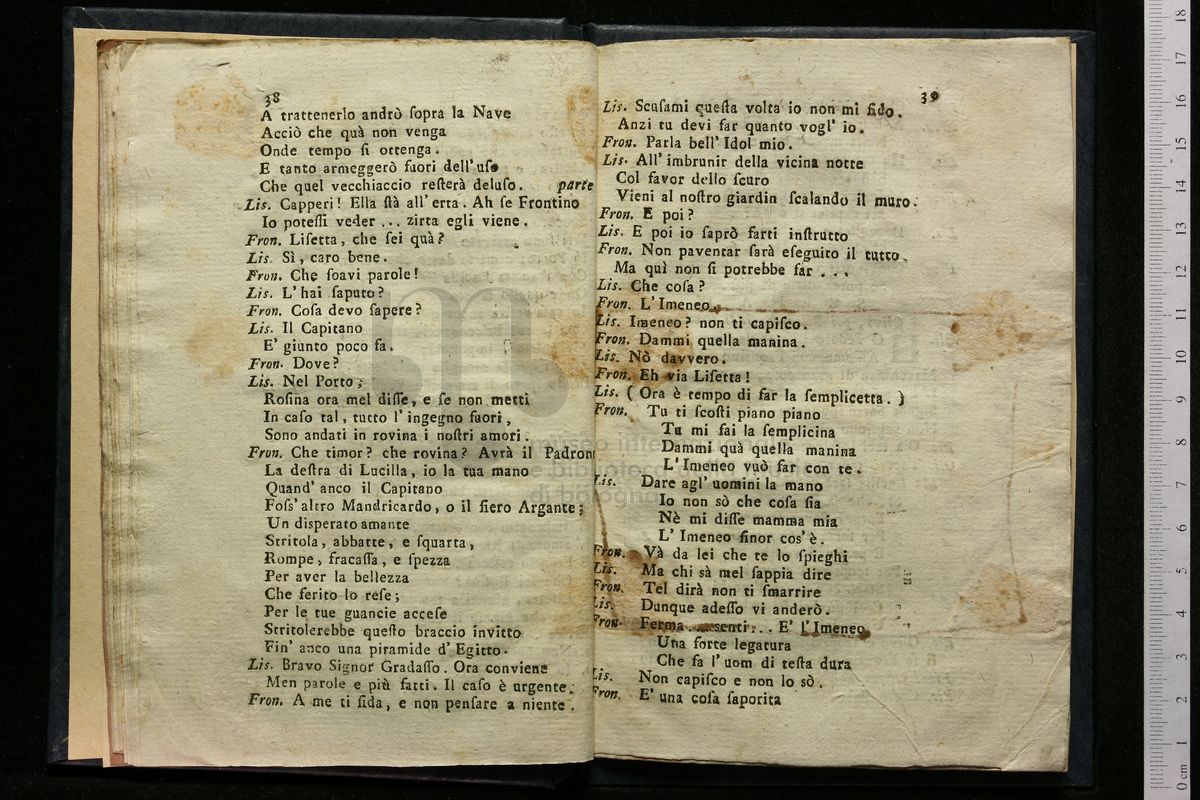 38
A trattenerlo andrò ſopra la Nave
Acciò che quà non venga
Onde tempo ſi ottenga.
E tanto armeggerò fuori dell'uſo
Che quel vecchiaccio reſterà deluſo. parte
Lis. Capperi! Ella ſtà all'erta. Ah ſe Frontino
Io poteſſi veder ... zitta egli viene.
Fron. Liſetta, che ſei quà?
Lis. Sì, caro bene.
Fron. Che ſoavi parole!
Lis. L'hai ſaputo?
Fron. Coſa devo ſapere?
Lis. Il Capitano
E' giunto poco fa.
Fron. Dove?
Lis. Nel Porto;
Roſina ora mel diſſe, e ſe non metti
In caſo tal, tutto l'ingegno fuori,
Sono andati in rovina i noſtri amori.
Fron. Che timor? che rovina? Avrà il Padron
La deſtra di Lucilla, io la tua mano
Quand'anco il Capitano
Foſs'altro Mandricardo, o il fiero Argante;
Un diſperato amante
Stritola, abbatte, e ſquarta,
Rompe, fracaſſa, e ſpezza
Per aver la bellezza
Che ferito lo reſe;
Per le tue guancie acceſe
Stritolerebbe queſto braccio invitto
Fin'anco una piramide d'Egitto.
Lis. Bravo Signor Gradaſſo. Ora conviene
Men parole e più fatti. Il caſo è urgente.
Fron. A me ti fida, e non penſare a niente.
39
Lis. Scuſami queſta volta io non mi fido.
Anzi tu devi far quanto vogl'io.
Fron. Parla bell'Idol mio.
Lis. All'imbrunir della vicina notte
Col favor dello ſcuro
Vieni al noſtro giardin ſcalando il muro.
Fron. E poi?
Lis. E poi io ſaprò farti inſtrutto
Fron. Non paventar ſarà eſeguito il tutto.
Ma quì non ſi potrebbe far ...
Lis. Che coſa?
Fron. L'Imeneo.
Lis. Imeneo? non ti capiſco.
Fron. Dammi quella manina.
Lis. Nò davvero.
Fron. Eh via Liſetta!
Lis. (Ora è tempo di far la ſemplicetta.)
Fron. Tu ti ſcoſti piano piano
Tu mi fai la ſemplicina
Dammi quà quella manina
L'Imeneo vuò far con te.
Lis. Dare agl'uomini la mano
Io non sò che coſa ſia
Nè mi diſſe mamma mia
L'Imeneo finor cos'è.
Fron. Và da lei che te lo ſpieghi
Lis. Ma chi sà mel ſappia dire
Fron. Tel dirà non ti ſmarrire
Lis. Dunque adeſſo vi anderò.
Fron. Ferma...ſenti... E' l'Imeneo
Una forte legatura
Che fa l'uom di teſta dura
Lis. Non capiſco e non lo sò.
Fron. E' una coſa ſaporita
museo internazionale
e biblioteca della musica
di bologna
0 cm 1 2 3 4 5 6 7 8 9 10 11 12 13 14 15 16 17 18